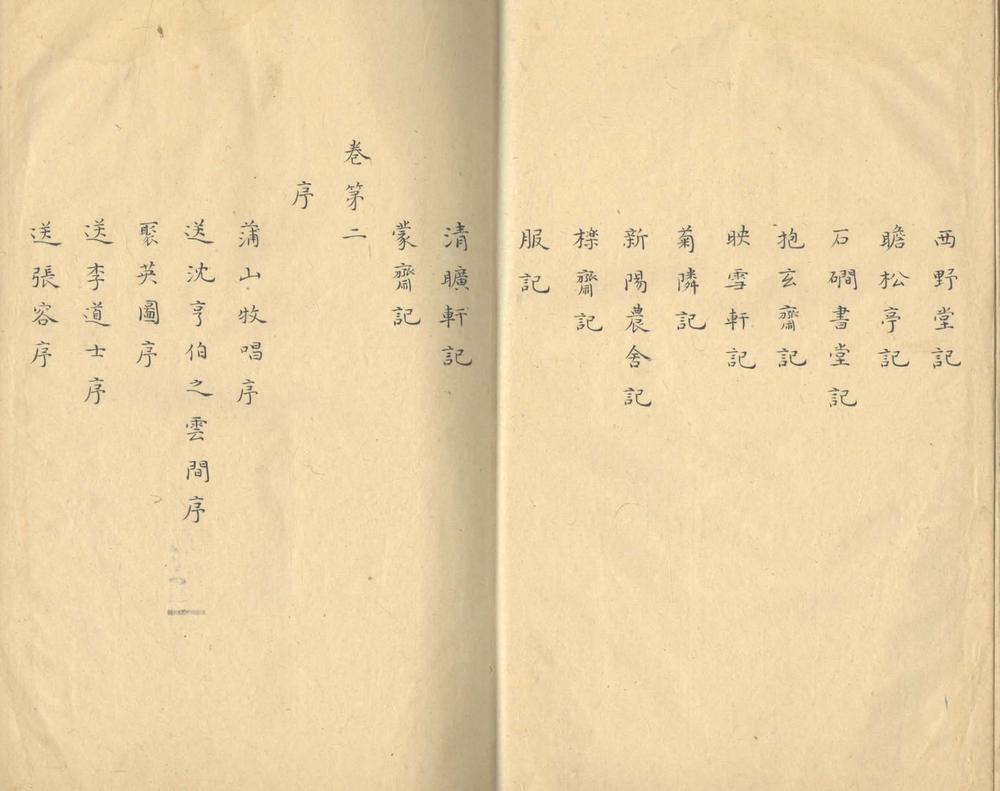 西野堂記
瞻松亭記
石磵書堂記
抱玄齋記
映雪軒記
菊隣記
新陽農舍記
檪齋記
服記
清曠軒記
蒙齋記
卷苐二
序
蒲山牧唱序
送沈亨伯之雲間序
聚英圖序
送李道士序
送張容序